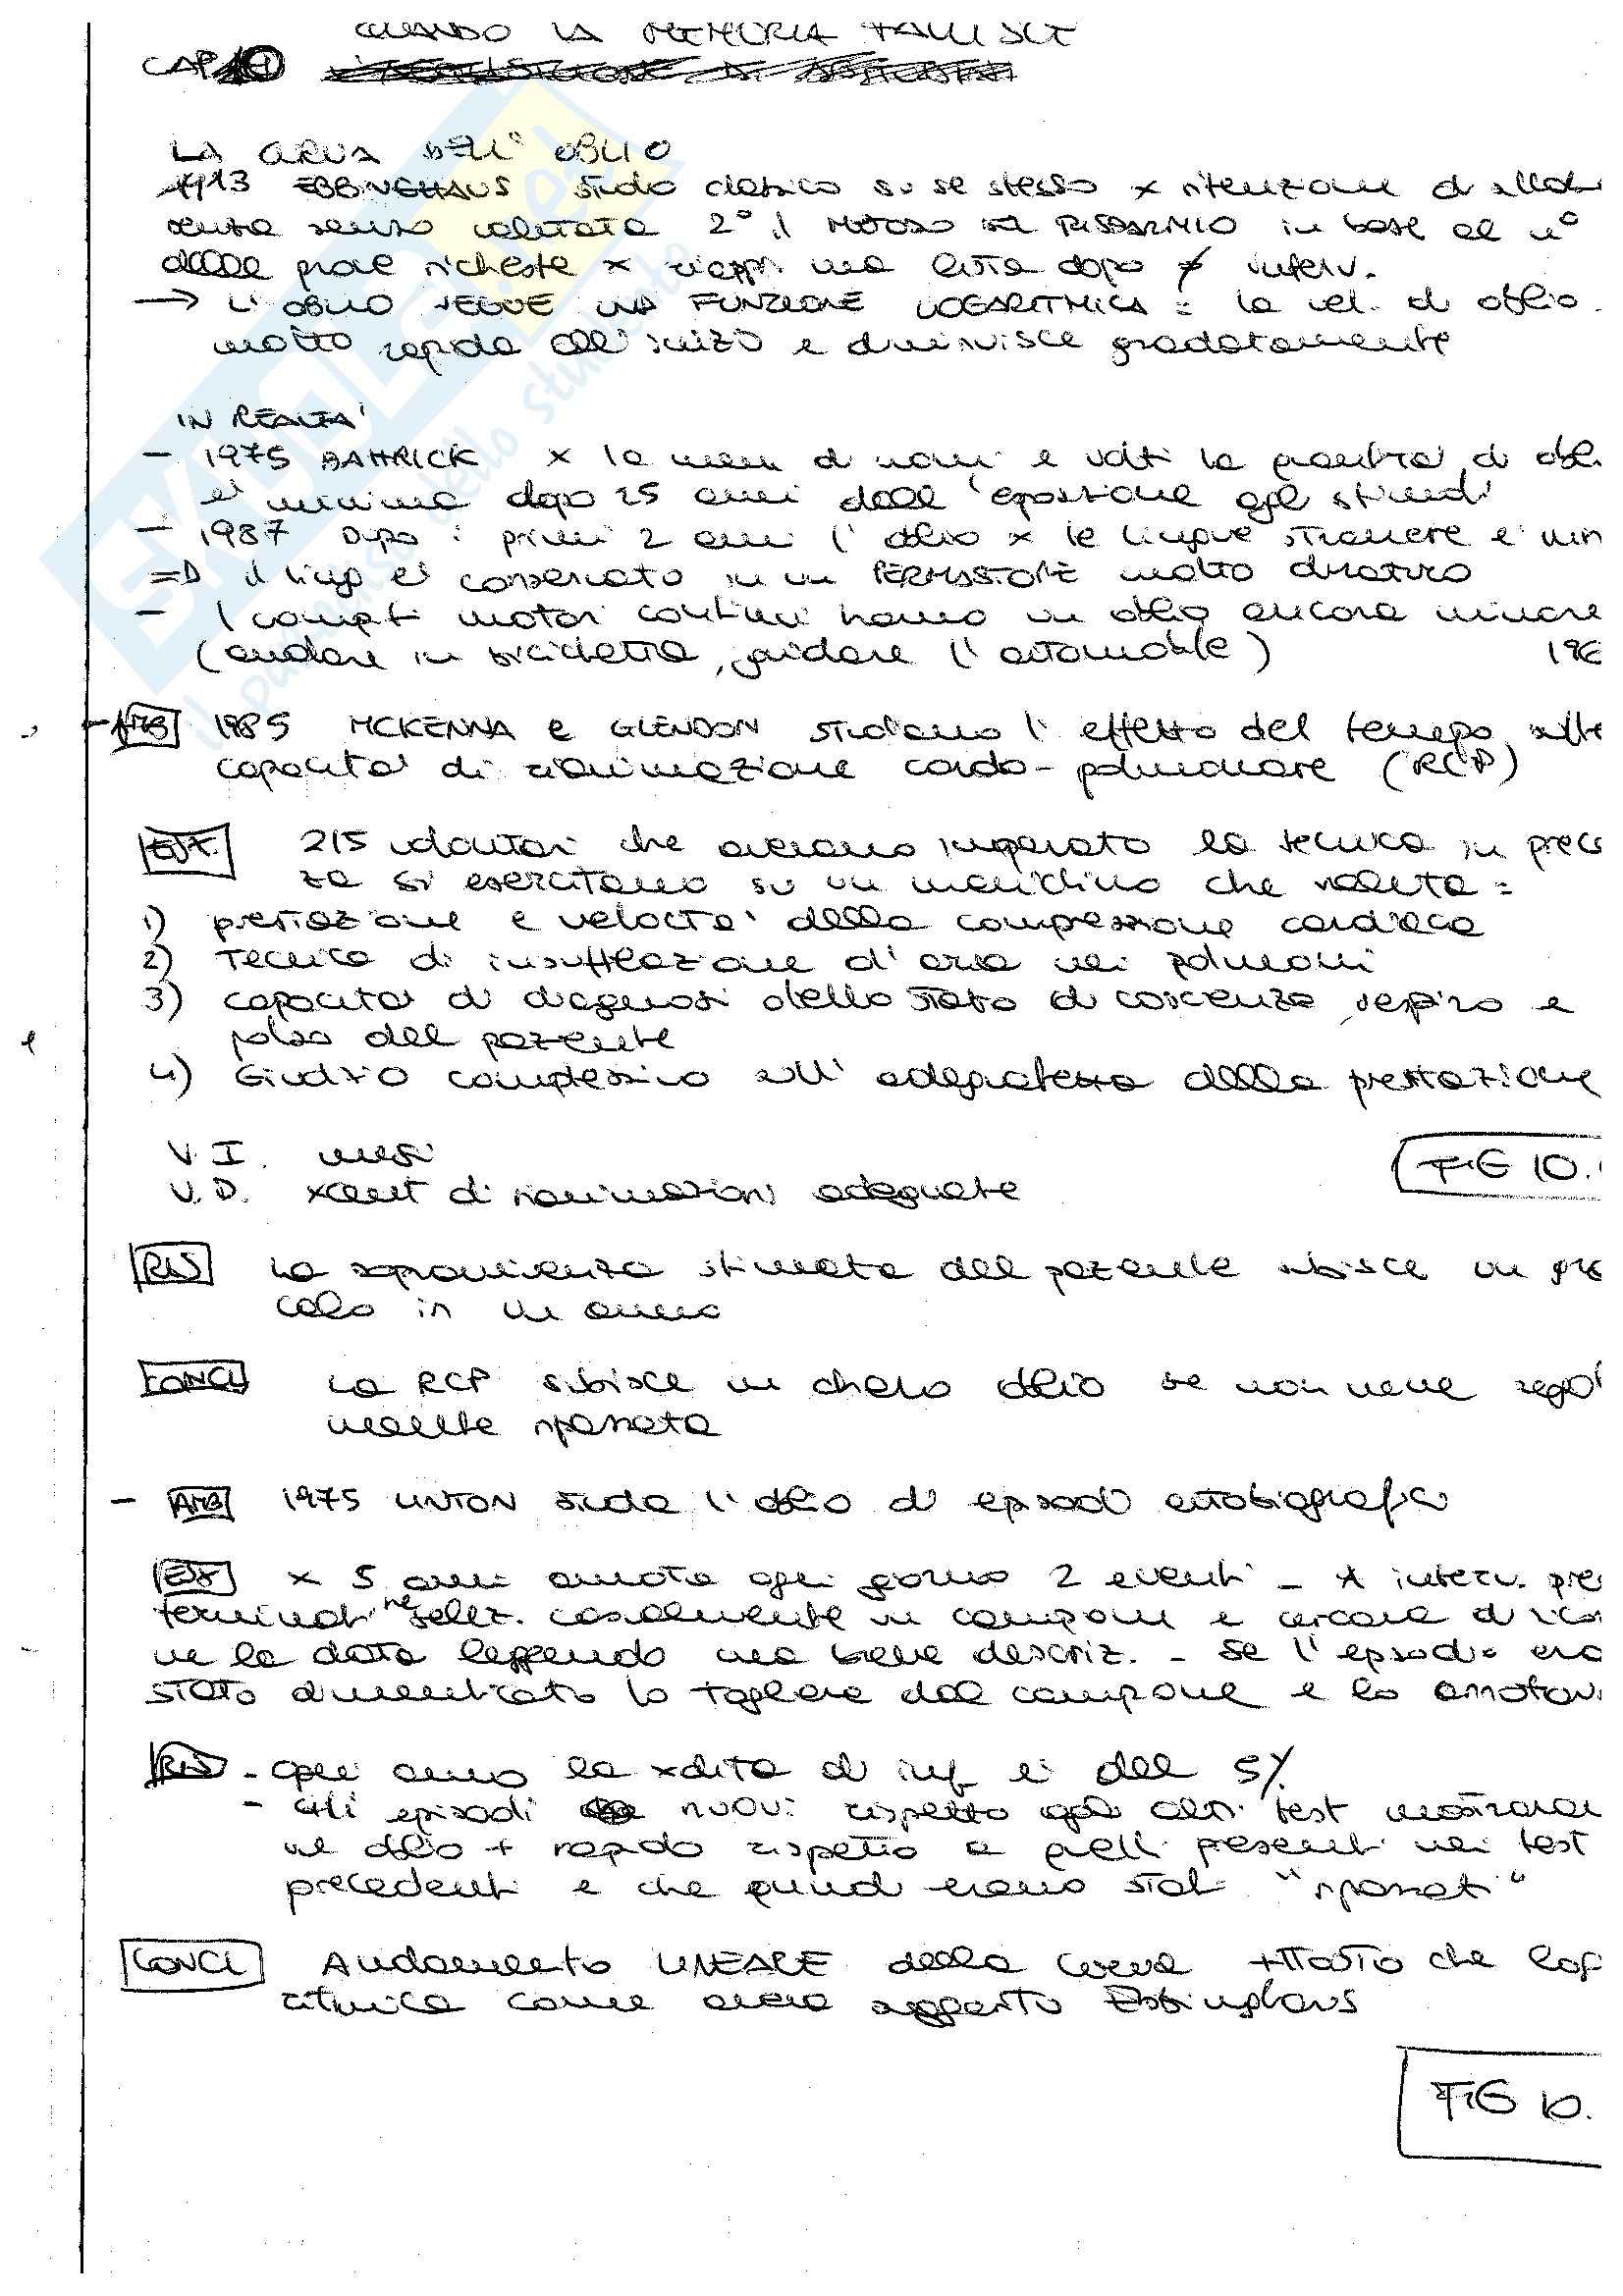 QUANDO LA MEMORIA FALLISCE
CAP 10
LA CURVA DELL' OBLIO
1913 EBBINGHAUS studio classico su se stesso x ritenzione di sillabe
senza senso valutata 2° il METODO DEL RISPARMIO in base al n°
delle prove richieste x riappr. una lista dopo ≠ interv.
→ L'OBLIO SEGUE UNA FUNZIONE LOGARITMICA = la vel. di oblio
molto rapida all'inizio e diminuisce gradatamente
IN REALTA'
- 1975 BAHRICK x la mem di nomi e volti la perdita di obl
e' minima dopo 25 anni dall'esposizione agli stimoli
- 1987 Dopo i primi 2 anni l'oblio x le lingue straniere e' min
=D il ling e' conservato in un PERMASTORE molto duraturo
- I compiti motori continui hanno un oblio ancora minore
(andare in bicicletta, guidare l'automobile) 196
- AMB 1985 MCKENNA e GLENDON studiano l'effetto del tempo sulle
capacita' di rianimazione cardo-polmonare (RCP)
ESP. 215 volontari che avevano imparato la tecnica in prece
za si esercitano su un manichino che valuta =
1) prestazione e velocita' della compressione cardiaca
2) Tecnica di insufflazione d'aria nei polmoni
3) capacita' di diagnosi dello stato di coscienza, respiro e
polso del paziente
4) Giudizio complessivo sull'adeguatezza della prestazione
V.I. mesi
V.D. xcent di rianimazioni adeguate
FIG 10.
RIS La sopravvivenza stimata del paziente subisce un
calo in un anno
CONCL La RCP subisce un chiaro oblio se non viene regol
mente ripassata
- AMB 1975 LINTON studia l'oblio di episodi autobiografici
ESP x 5 anni annota ogni giorno 2 eventi - A interv. pre
terminati ne selez. casualmente un campione e cercava di
ne la data leggendo una breve descriz. - Se l'episodio era
stato dimenticato lo togliere dal campione e lo annotava
RIS - Ogni anno la xdita di inf e' del 5%
- Gli episodi nuovi rispetto agli altri test mostrava
un oblio + rapido rispetto a quelli presenti nei test
precedenti e che quindi erano stati "ripassati"
CONCL Andamento LINEARE della curva +ttosto che log
ritmica come aveva suggerito Ebbinghaus
FIG 10.